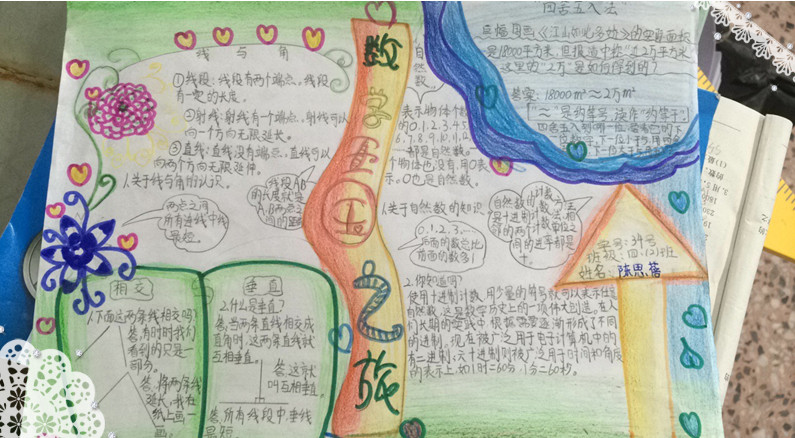 线与角
①线段:线段有两个端点,线段
有一定的长度。
②射线:射线有一个端点,射线可以
向一个方向无限延长。
③直线:直线没有端点,直线可以
向两个方向无限延伸。
1.关于线与角的认识。
两点之间
所有连线中线
段最短。
线段AB
的长度就是
A、B两点之
间的距离
相交
1.下面这两条线相交吗?
答:有的时我们
看到的只是一
部分。
答:将两条线
延长,我在
纸上画一
画。
垂直
2.什么是垂直?
答:当两条直线相交成
直角时,这两条直线就
互相垂直。
答:这就
叫互相垂直。
答:所有线段中垂线
最短
数学王之旅
自然数。
表示物体个数
的0.1.2.3.4.5.
6.7.8.9.10
都是自然数。
个物体也没有,用0表
示。0也是自然数。
1.关于自然数的知识
0.1.2.3.
后面的数总比
前面的数多1
自然数的计数方法
是十进制计数法,相
邻的两个计数单位之
间的进率都是
十。
四舍五入法
巨幅国画《江山如此多娇》的空脊面积
是18000平方米,但报道中称“近2万平方米
这里的“2万”是如何得到的?
18000m²≈2万m²
「~」是约等号,读作“约等于」
学号:3号
班级:四.(2)班
姓名:陈思蓓
2.你知道吗?
使用十进制计数,用少量的符号就可以表示任意
自然数,这是数学历史上的一项伟大创造。在人
们长期的实践中,根据需要逐渐形成了不同
的进制。现在被广泛用于电子计算机中的
有二进制;六十进制则被广泛用于时间和角度
的表示上,如1时=60分,1分=60秒。